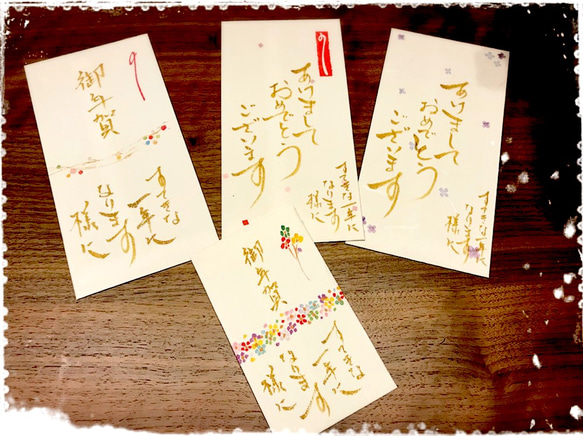 御年賀
すてきな
一年に
なります
様に
あけまして
おめでとう
ございます
すてきな一年に
なります
様に
あけまして
おめでとう
ございます
すてきな一年に
なります
様に
御年賀
すてきな
一年に
なります
様に